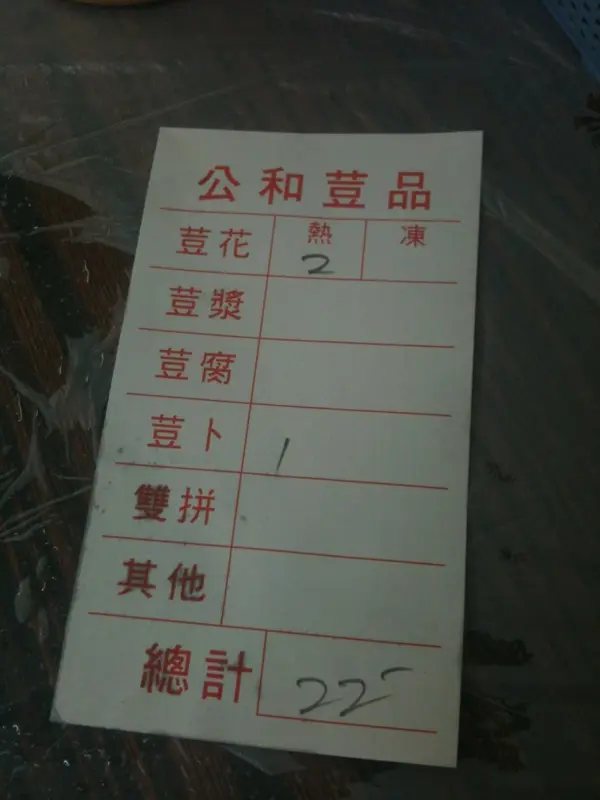 公和荳品
荳花 熱 2 凍
荳漿
荳腐
荳卜 1
雙拼
其他
總計 22-